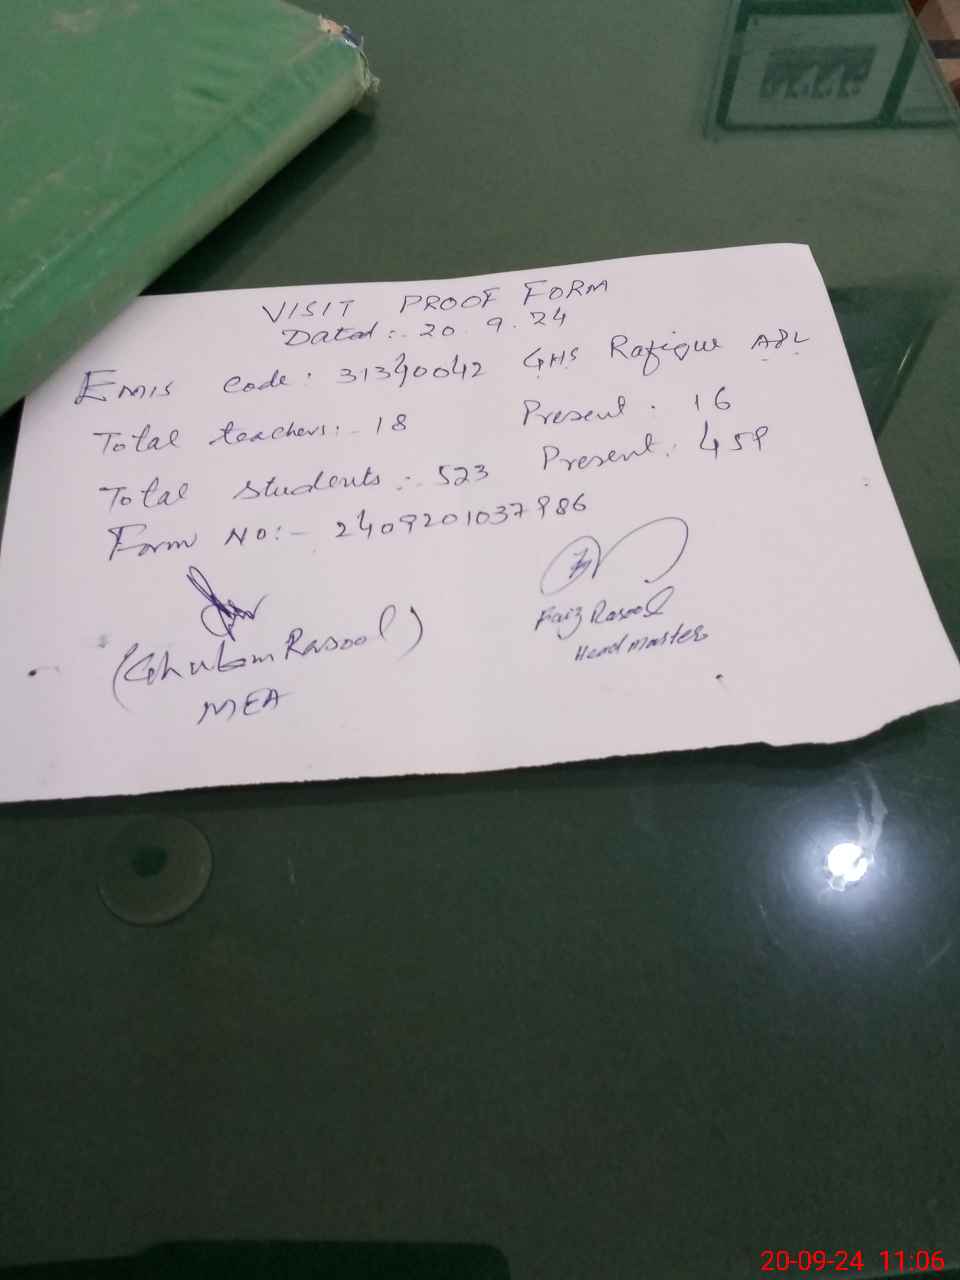 VISIT PROOF FORM
Dated:. 20.9.24
EMIS Code: 31340042 GHS Rafique ABL
Total teachers:- 18 Present: 16
Total students:. 523 Present: 459
Form NO:- 2409201037986
(Ghulam Rasool)
MEA
Faiz Rasool
Head master
20-09-24 11:06